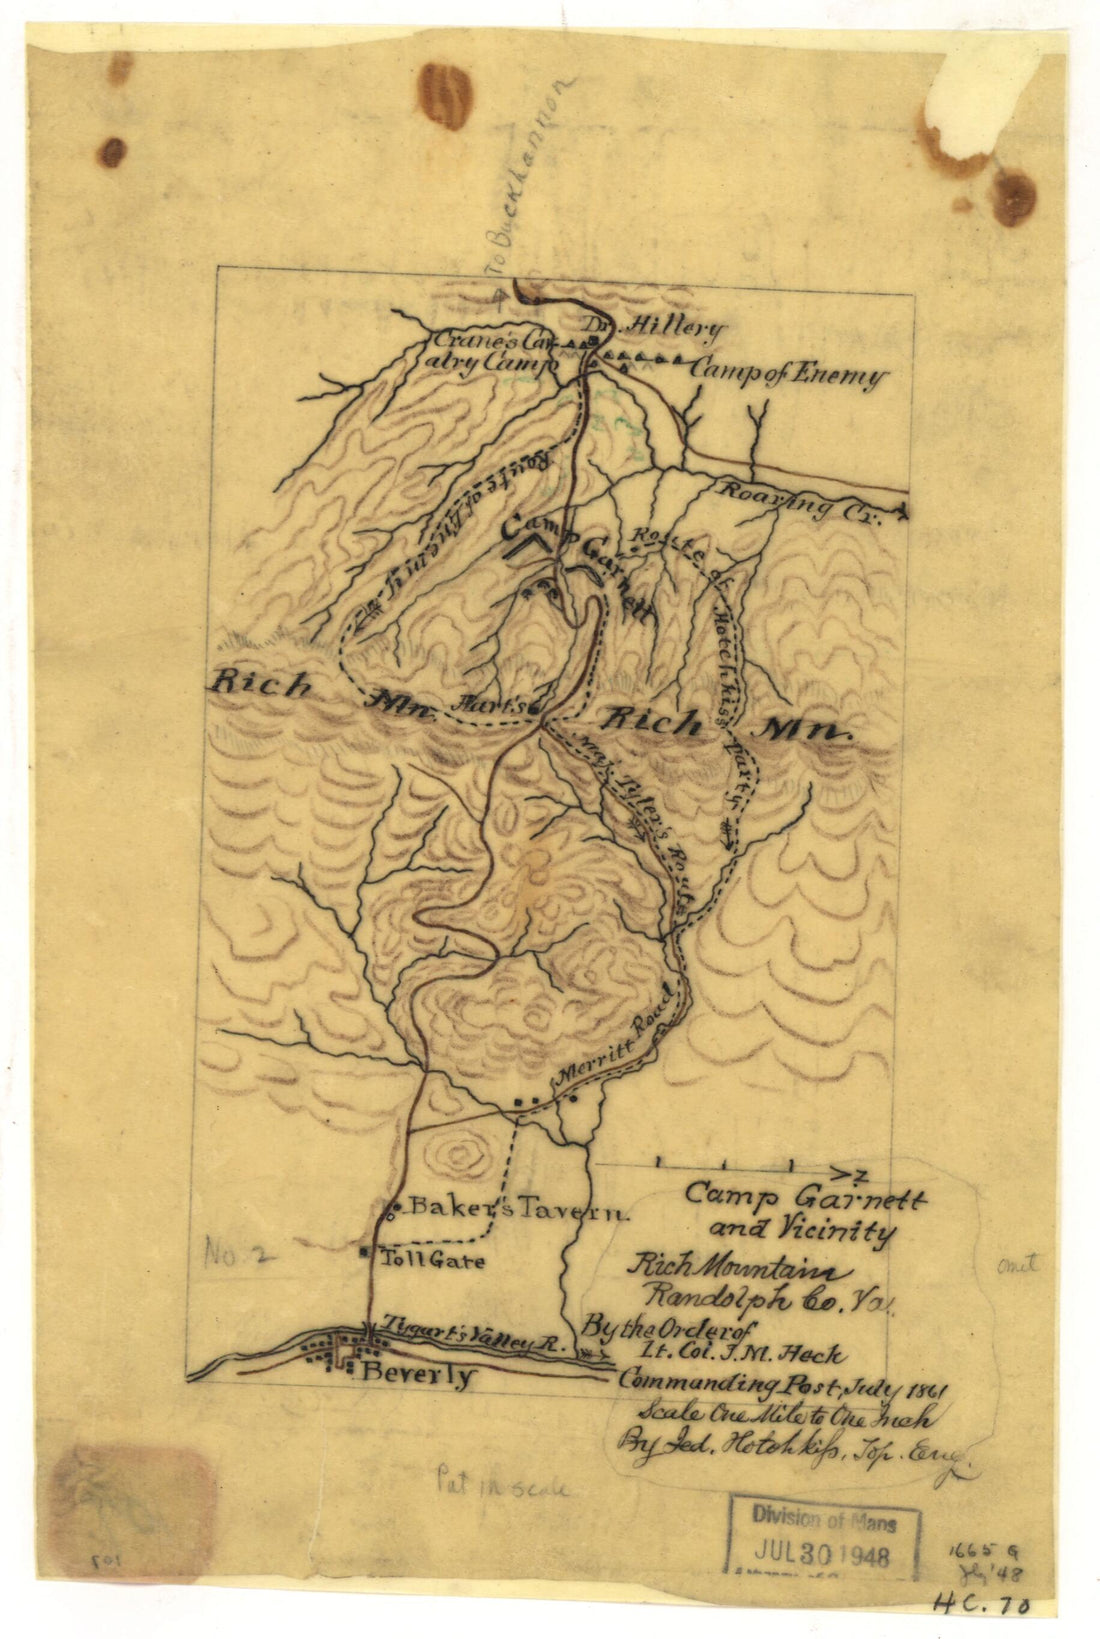 To Buckhannon
Dr. Hillery
Crane's Cav-
alry Camp
Camp of Enemy
Route of Enemy
Roaring Cr.
Camp Garnett
Route of Hotchkiss' Party
Rich Mn.
Hart's
Rich Mn.
Maj. Tyler's Route
Merritt Road
N
Camp Garnett
and Vicinity
Rich Mountain
Randolph Co. Va.
By the Order of
Lt. Col. J. M. Heck
Commanding Post, July 1861
Scale One Mile to One Inch
By Jed. Hotchkiss, Top. Eng.
Baker's Tavern.
No. 2
Toll Gate
omit
Tygart's Valley R.
Beverly
Put in scale
Division of Maps
JUL 30 1948
1665 G
Jly '48
H C. 70